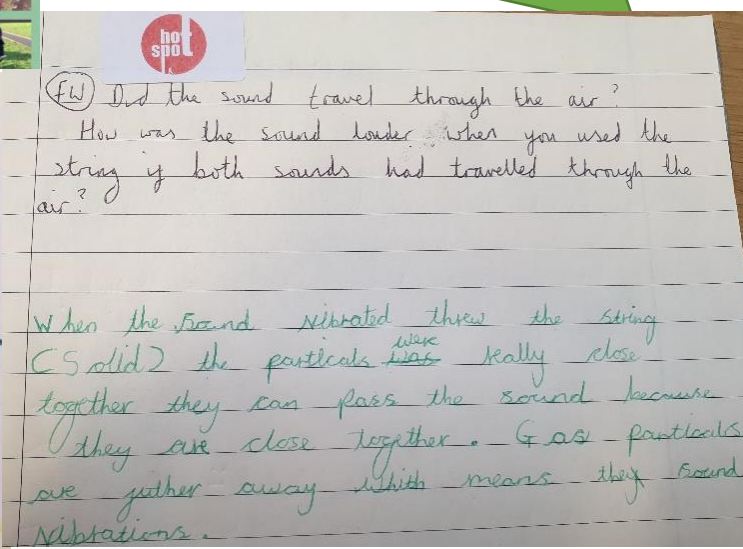 hot
spot
FW Did the sound travel through the air?
How was the sound louder when you used the
string if both sounds had travelled through the
air?
When the sound vibrated threw the string
(Solid) the particals ~~was~~ were really close
together they can pass the sound because
they are close together. Gas particals
are futher away which means they sound
vibrations.